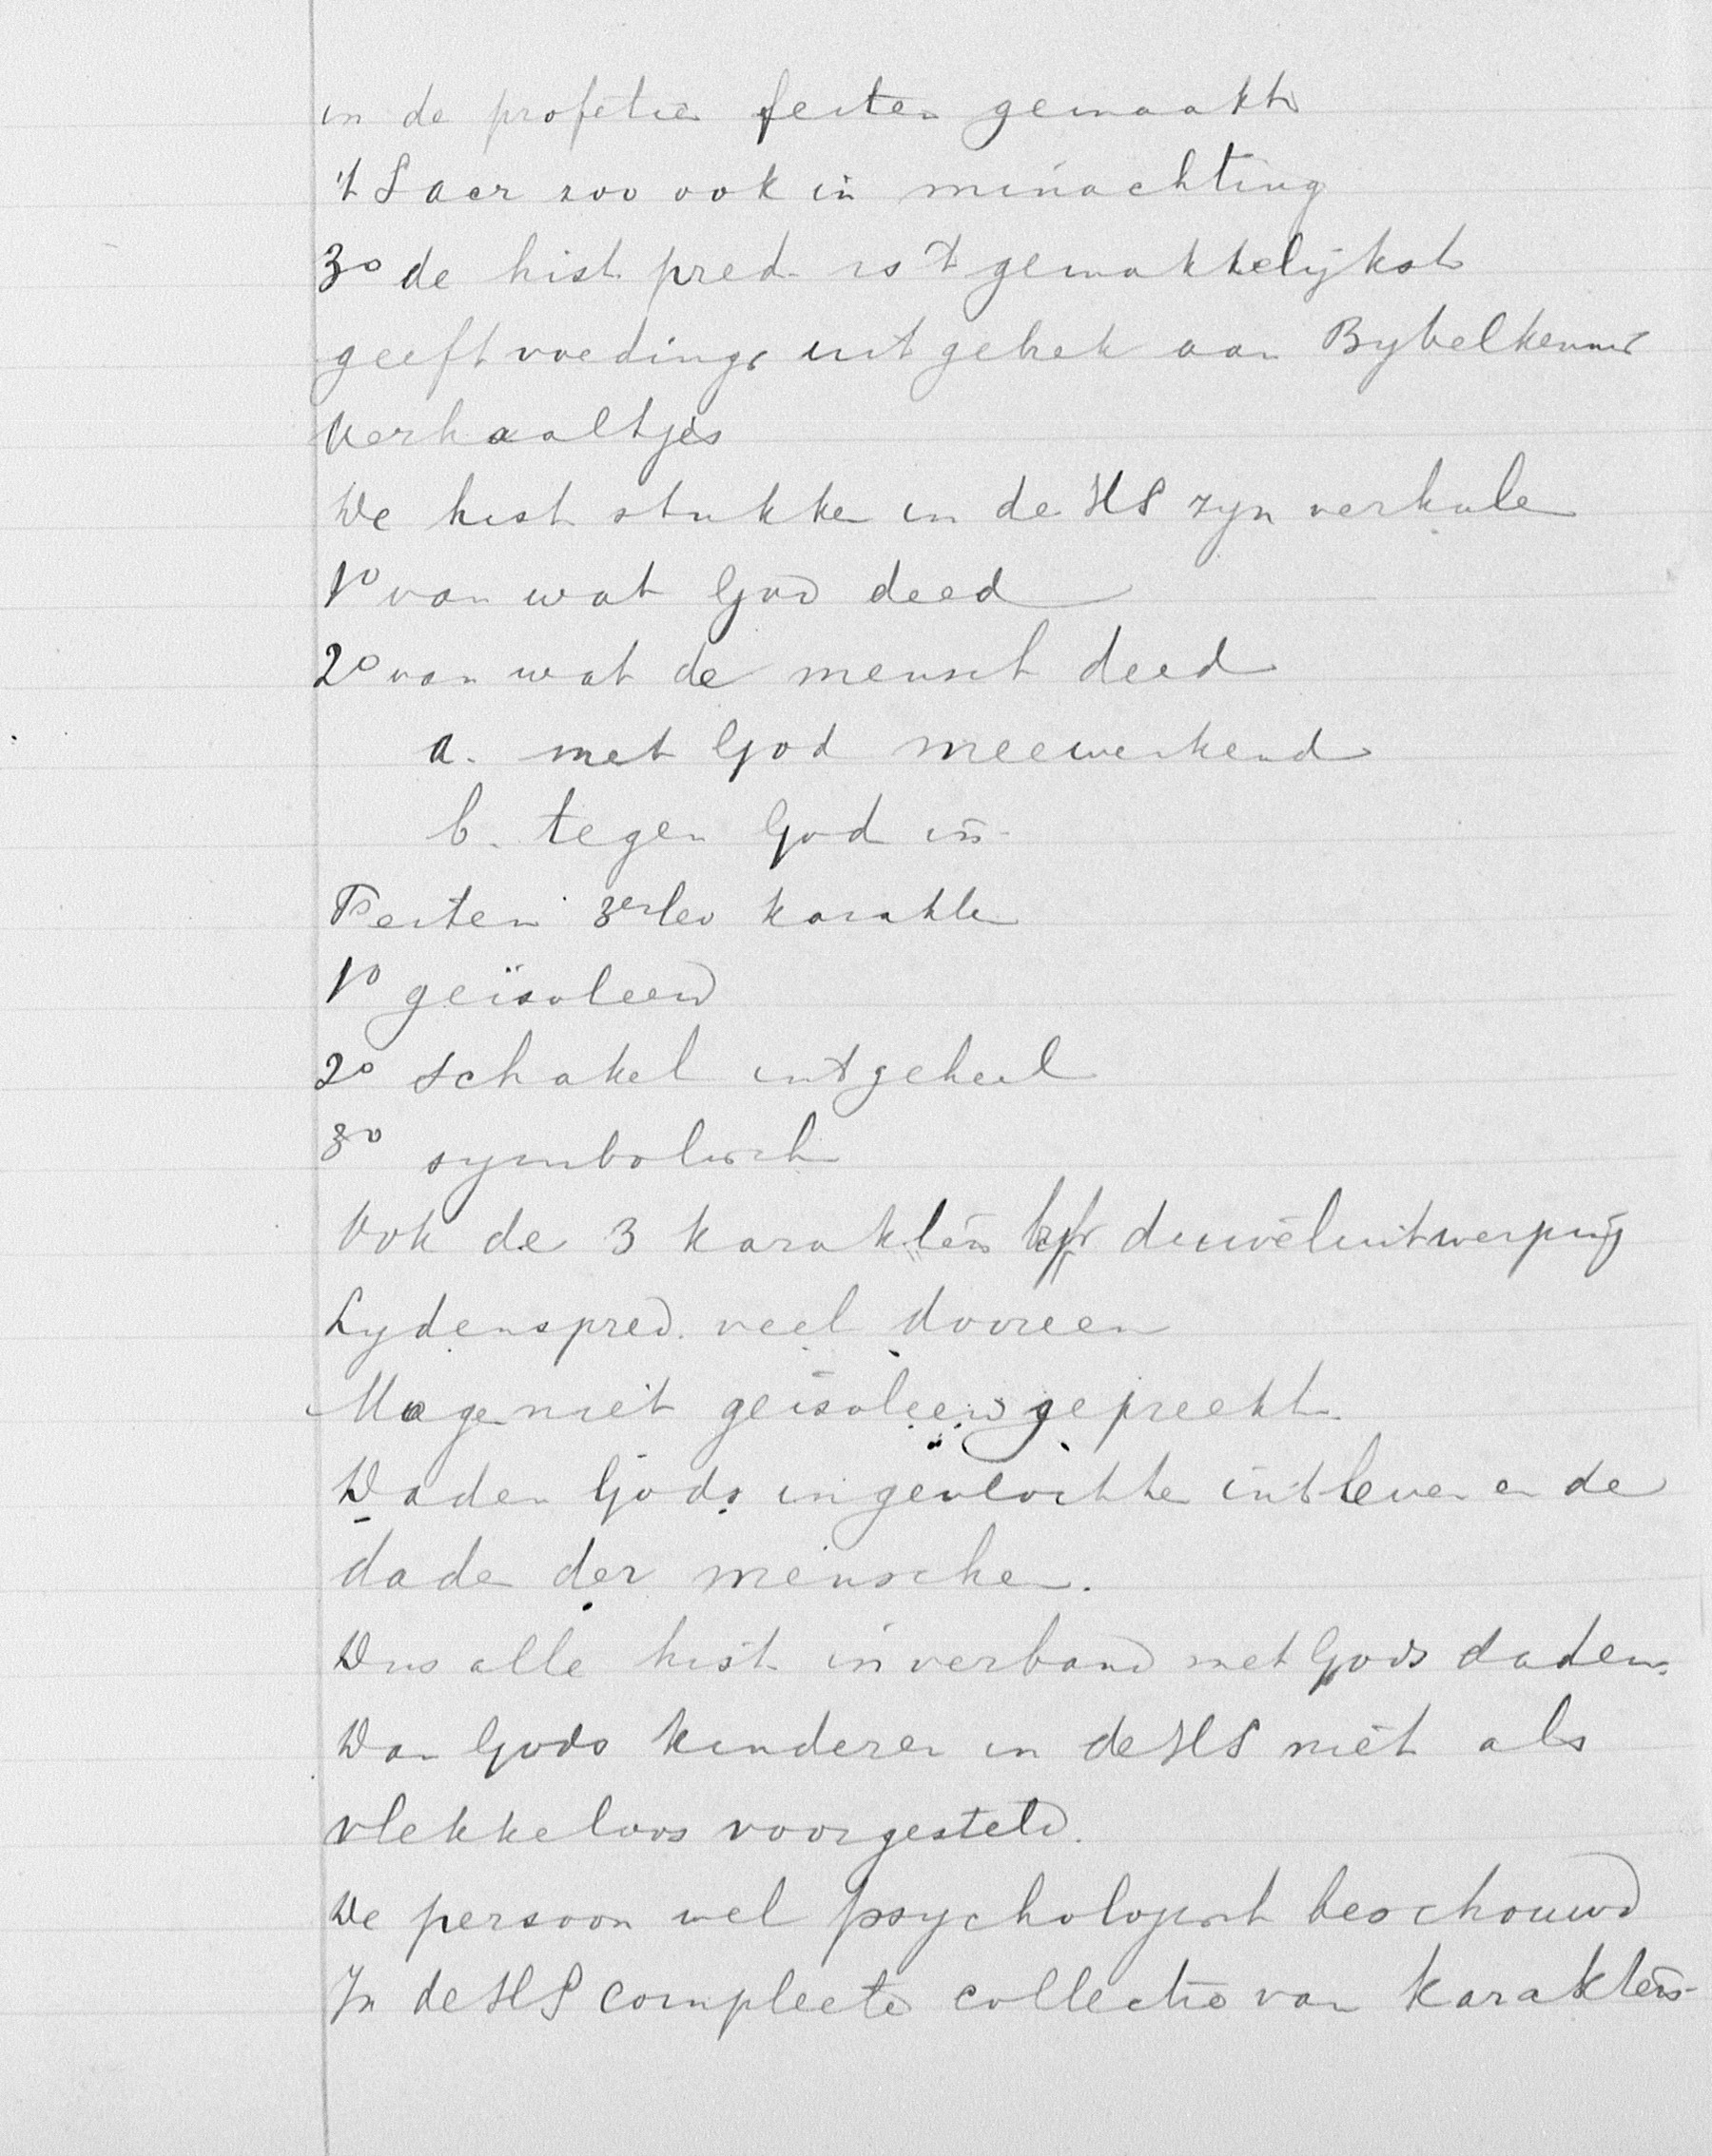 in de profetie feiten gemaakt
't Sacr zoo ook in minachting
3o de hist. pred. is 't gemakkelijkst
geeft voeding, uit gebrek aan Bybelkennis
Verhaaltjes
De hist stukken in de HS zyn verhalen
1o van wat God deed
2o van wat de mensch deed
a. met God meewerkend
b. tegen God in
Feiten 3erlei karakter
1o geïsoleerd
2o schakel in 't geheel
3o symbolisch
Ook de 3 karakters duiveluitwerping
Lydenspred. veel dooreen
Mogen niet geisoleerd gepreekt.
Daden Gods ingevlochten in 't leven en de
daden der menschen.
Dus alle hist in verband met Gods daden.
Dan Gods kinderen in de HS niet als
vlekkeloos voorgesteld.
De persoon wel psychologisch beschouwd
In de HS compleete collectie van karakters